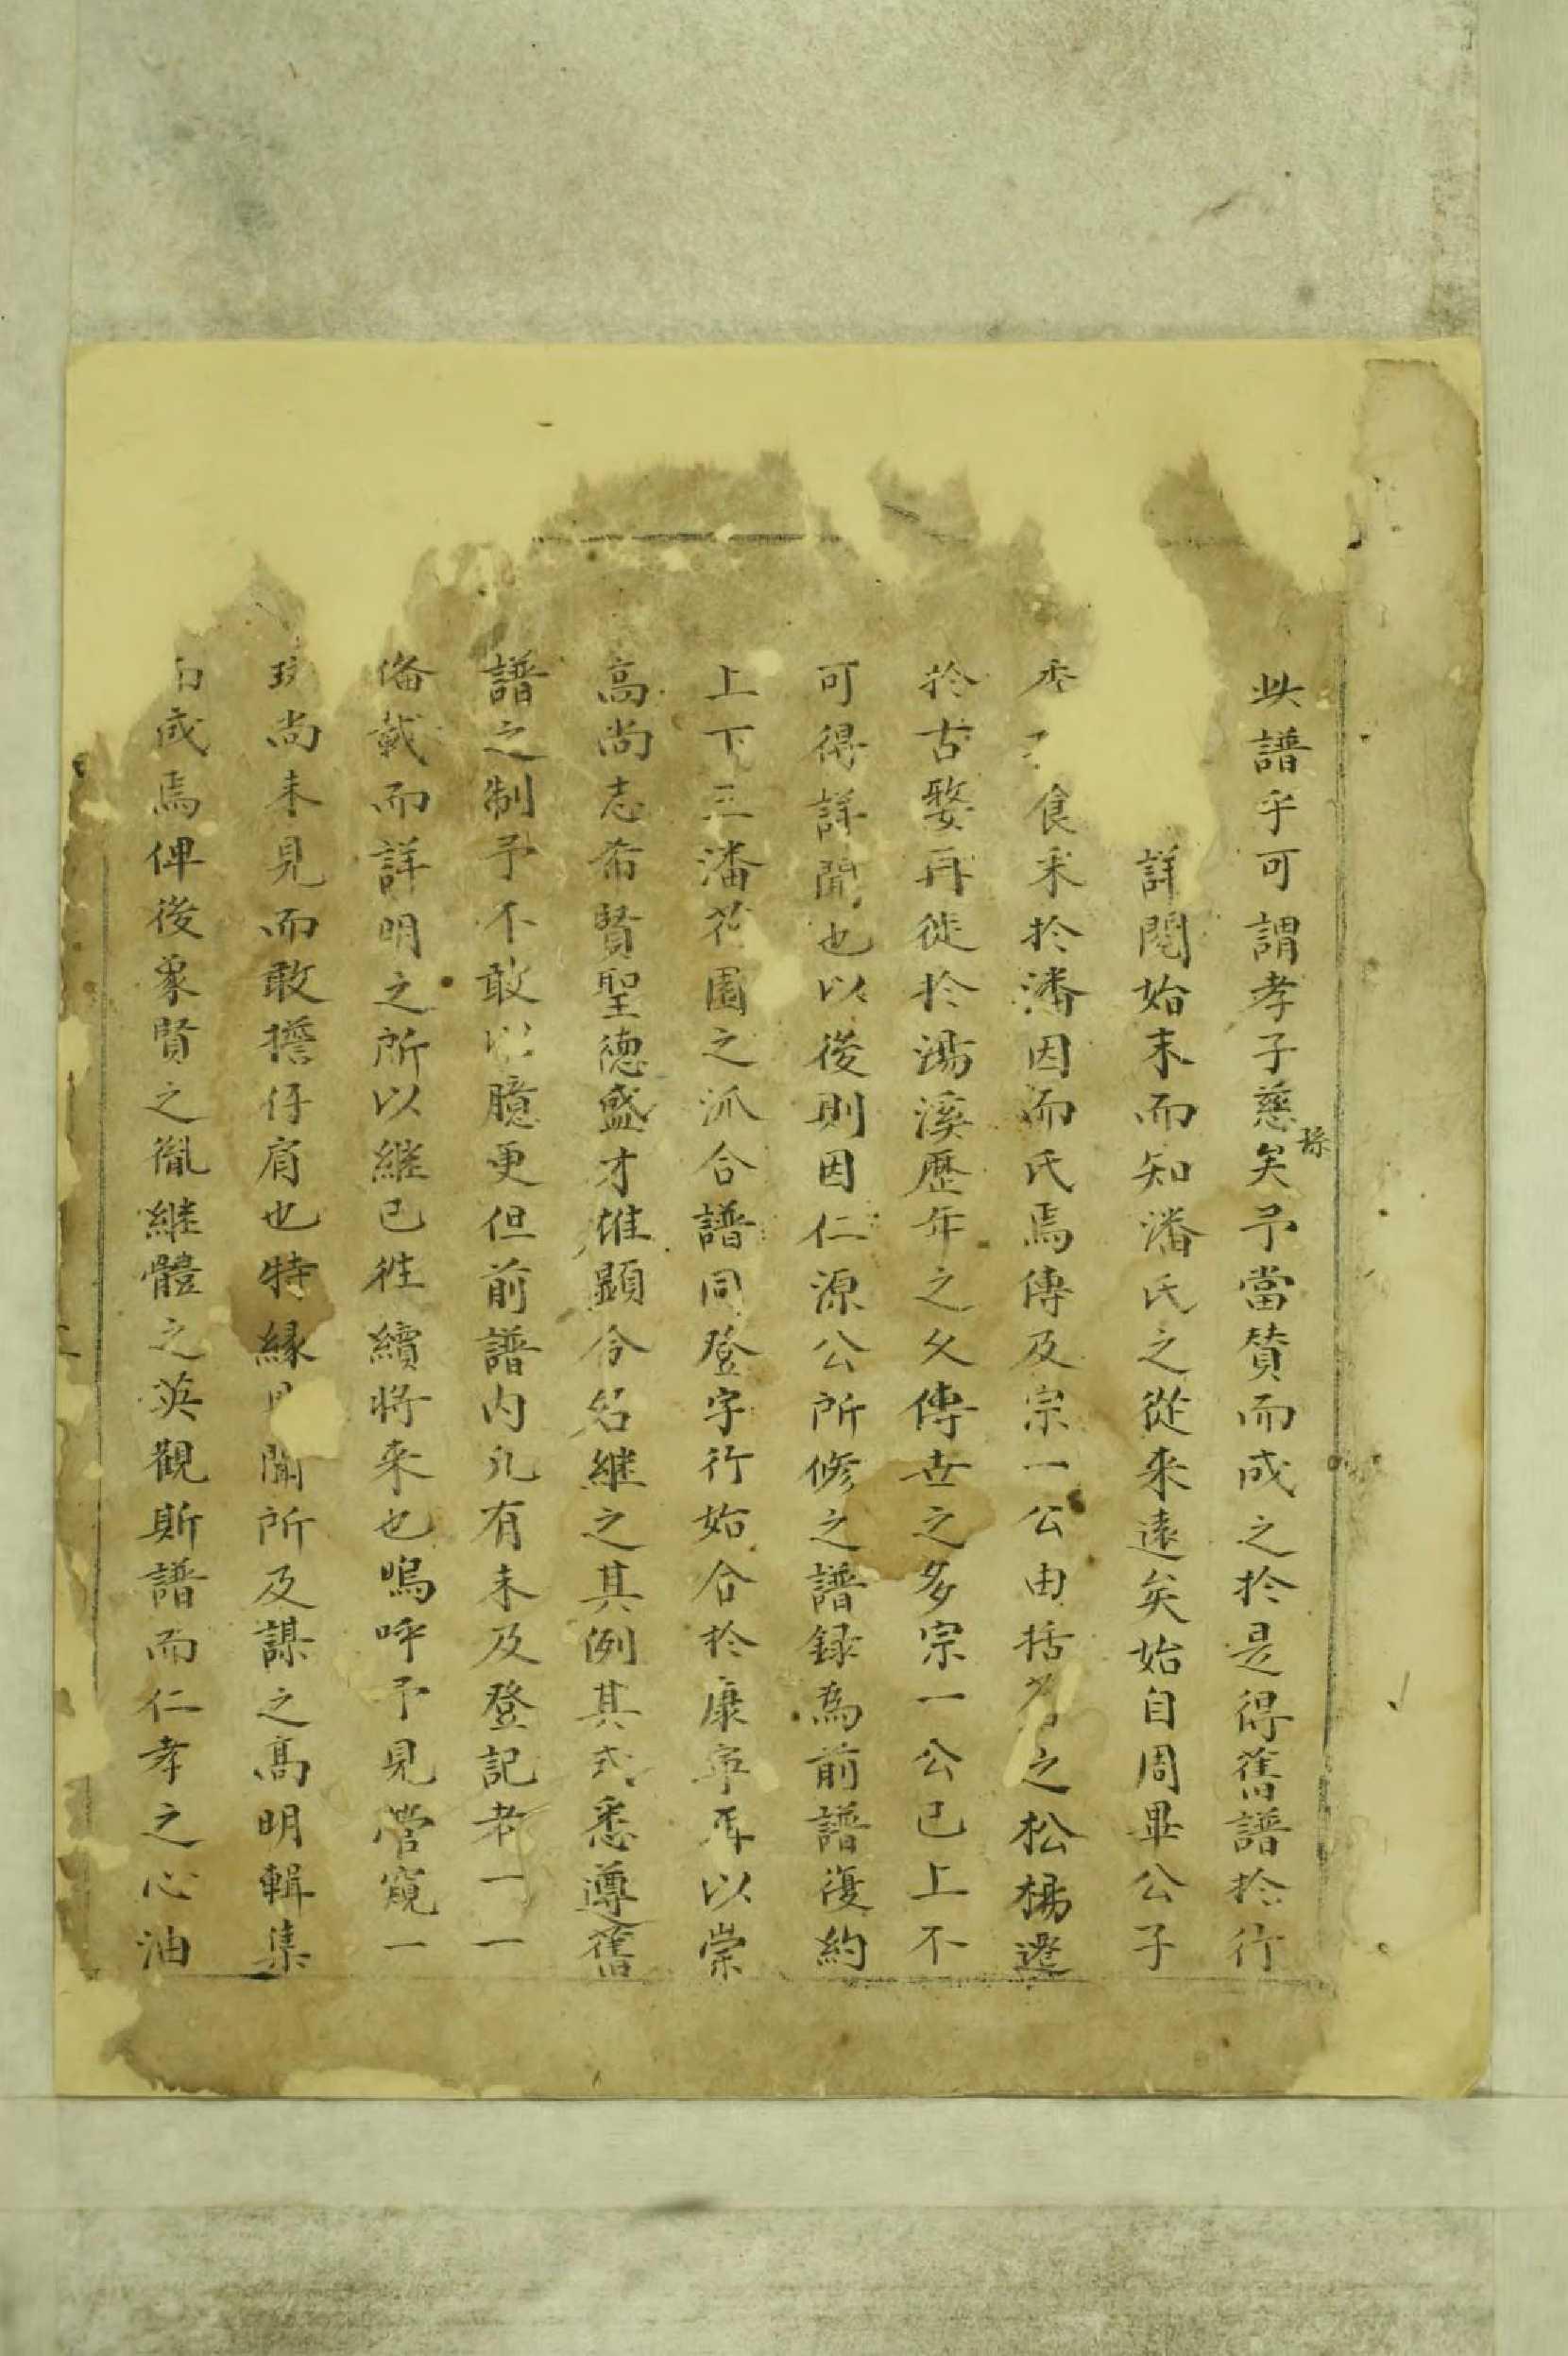 此譜乎可謂孝子慈孫矣予當賛而成之於是得舊譜於行
詳閱始末而知潘氏之從來遠矣始自周畢公子
季食釆於潘因而氏焉傳及宗一公由括之松楊遷
於古婺再徙於湯溪歷年之久傳世之多宗一公已上不
可得詳聞也以後則因仁源公所修之譜録為前譜復約
上下三潘花園之派合譜同登字行始合於康寕再以崇
高尚志希賢聖德盛才雄顯令名継之其例其式悉遵舊
譜之制予不敢以臆更但前譜内凢有未及登記者一一
俻載而詳明之所以継已徃續將来也嗚呼予見管窺一
尚未見而敢擔任肩也特縁聞所及謀之高明輯集
而成焉俾後象賢之胤継體之英觀斯譜而仁孝之心油